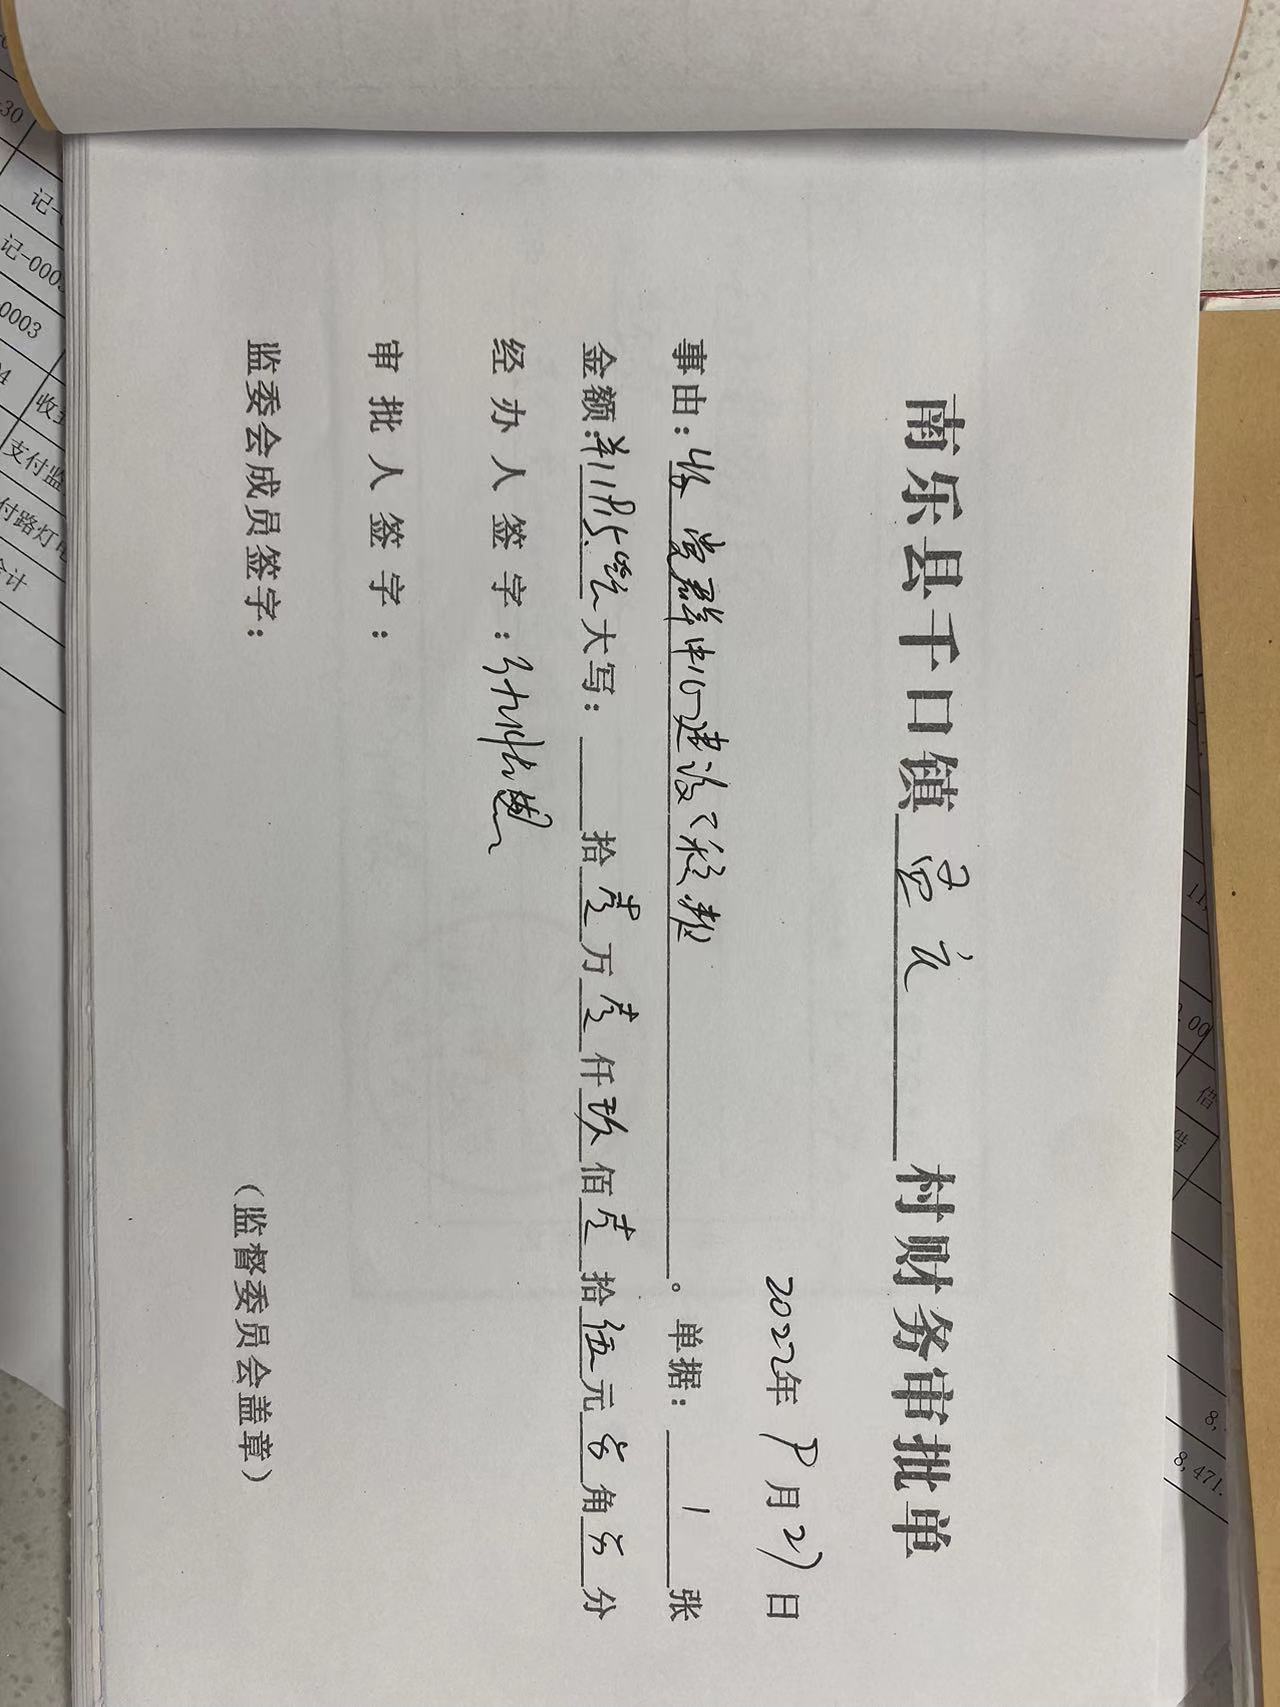 南乐县千口镇村财务审批单
2022年 月 日
事由：收党群中心建设工程款。单据：1张
金额：大写：拾壹万壹仟玖佰壹拾伍元零角零分
经办人签字：
审批人签字：
监委会成员签字：
（监督委员会盖章）
30
记-000
0003
收
支付监
付路灯电
合计
11,
00
借
8,
8,471.